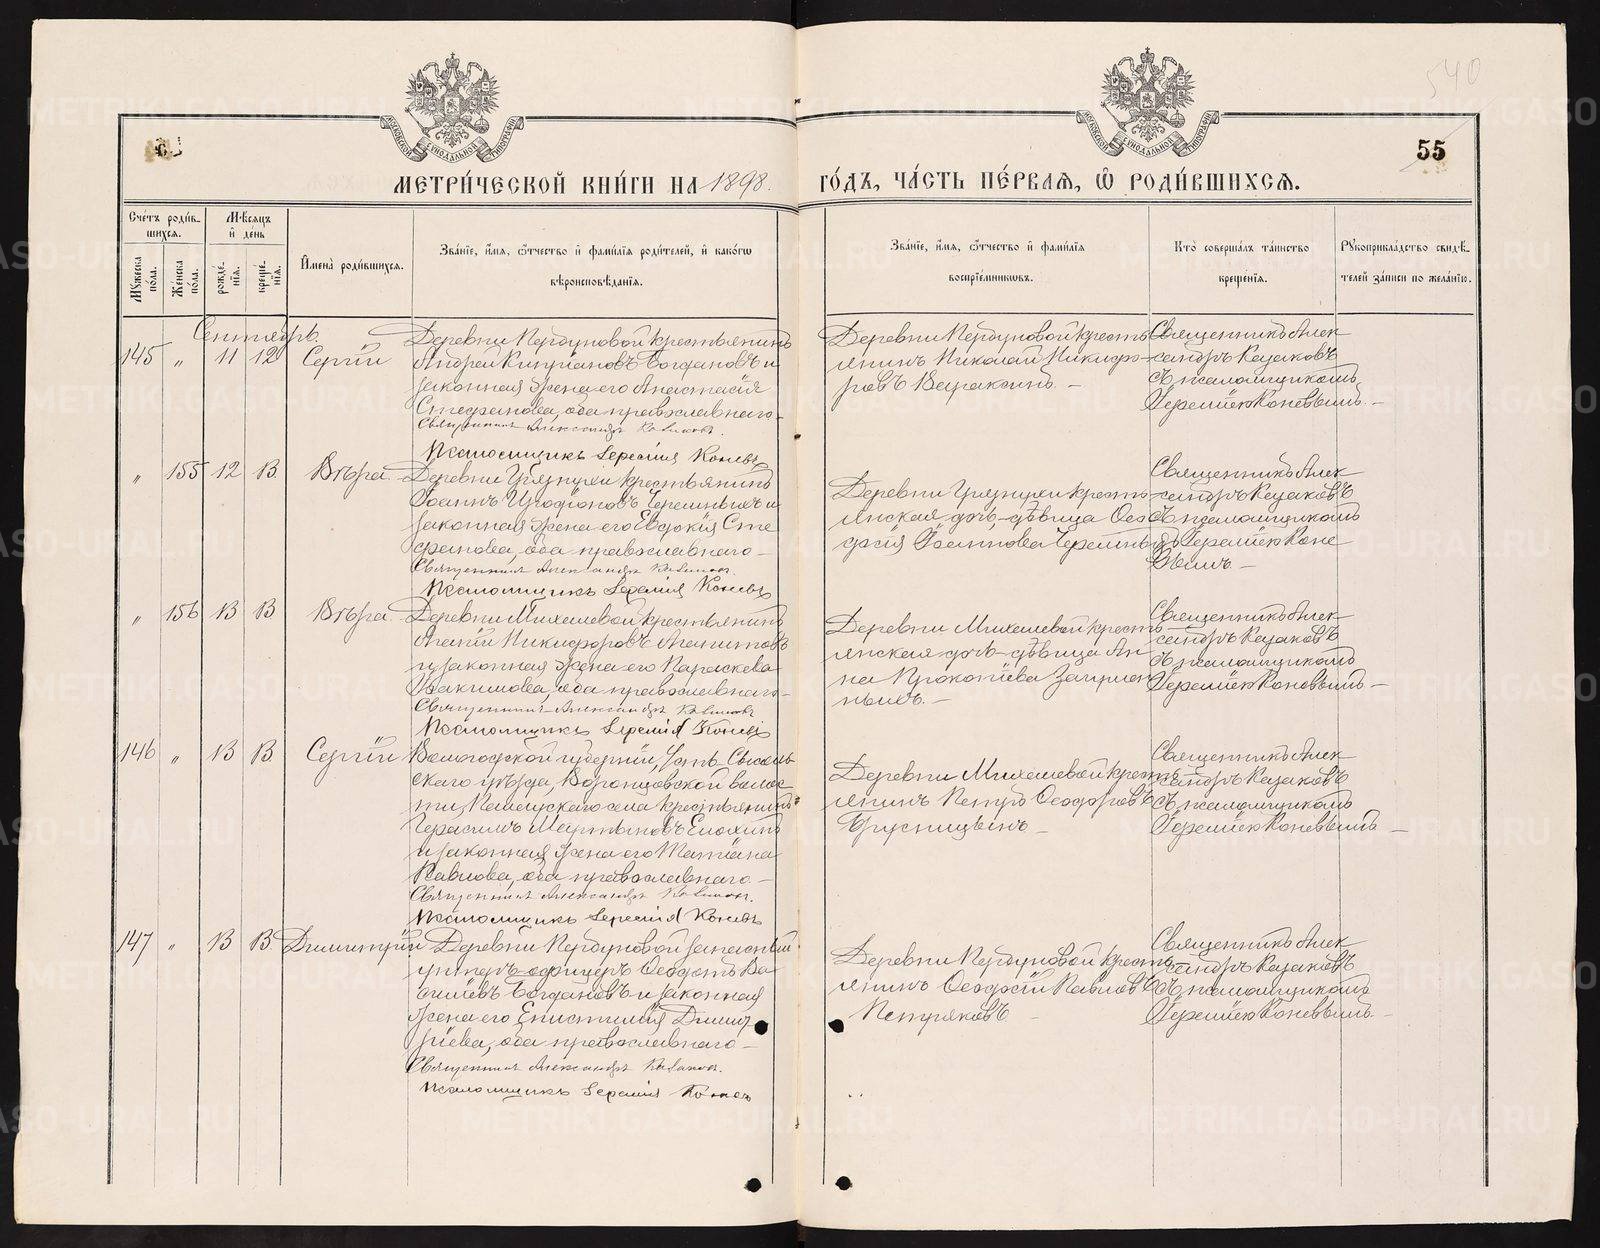 540
55
МОСКОВСКОЙ СѴНОДАЛЬНОЙ ТИПОГРАФІИ
МОСКОВСКОЙ СѴНОДАЛЬНОЙ ТИПОГРАФІИ
МЕТРИ́ЧЕСКОЙ КНИ́ГИ НА 1898. ГО́ДЪ, ЧА́СТЬ ПЕ́РВАѦ, Ѡ҆ РОДИ́ВШИХСѦ.
Сче́тъ роди́в-
шихсѧ.
Мꙋжеска по́ла.
Же́нска по́ла.
Мѣ́сѧцъ и҆ де́нь
рожде́-
нїѧ.
креще́-
нїѧ.
И҆мена̀ роди́вшихсѧ.
Зва́нїе, и҆́мѧ, ѻ҆́тчество и҆ фами́лїѧ роди́телей, и҆ како́гѡ
вѣроисповѣ́данїѧ.
Зва́нїе, и҆́мѧ, ѻ҆́тчество и҆ фами́лїѧ
воспрїе́мниковъ.
Кто̀ соверша́лъ та́инство
креще́нїѧ.
Рꙋкоприкла́дство свидѣ́-
телей за́писи по жела́нїю.
Сентябрь.
145 „ 11 12 Сергій
Деревни Пердуновой крестьянинъ
Андрей Кипріановъ Богдановъ и
законная жена его Анастасія
Стефанова, оба православнаго
Священникъ Александръ Казаковъ.
Псаломщикъ Іеремія Коневъ
Деревни Пердуновой кресть-
янинъ Николай Никифо-
ровъ Варакинъ. –
Священникъ Алек-
сандръ Казаковъ
съ псаломщикомъ
Іереміею Коневымъ. –
„ 155 12 13 Вѣра.
Деревни крестьянинъ
Іоаннъ Иродіоновъ Черемныхъ и
законная жена его Евдокія Сте-
фанова, оба православнаго –
Священникъ Александръ Казаковъ.
Псаломщикъ Іеремія Коневъ
Деревни кресть-
янская дочь–дѣвица Ѳео-
фія Іоаннова Черемныхъ
Священникъ Алек-
сандръ Казаковъ
съ псаломщикомъ
Іереміею Коне-
вымъ. –
„ 156 13 13 Вѣра.
Деревни Михалевой крестьянинъ
Агапій Никифоровъ
и законная жена его Параскева
Іоакимова, оба православнаго –
Священникъ Александръ Казаковъ
Псаломщикъ Іеремія Коневъ
Деревни Михалевой кресть-
янская дочь–дѣвица Ан-
на Прокопіева
ныхъ. –
Священникъ Алек-
сандръ Казаковъ
съ псаломщикомъ
Іереміею Коневымъ –
146 „ 13 13 Сергій
Вологодской губерніи, Усть-Сысоль-
скаго уѣзда, Воронцовской волос-
ти, села крестьянинъ
Герасимъ Мартыновъ Елохинъ
и законная жена его Татіана
Павлова, оба православнаго –
Священникъ Александръ Казаковъ.
Псаломщикъ Іеремія Коневъ
Деревни Михалевой кресть-
янинъ Петръ Ѳеодоровъ
Брусницынъ –
Священникъ Алек-
сандръ Казаковъ
съ псаломщикомъ
Іереміею Коневымъ –
147 „ 13 13 Димитрій
Деревни Пердуновой запасный
унтеръ-офицеръ Ѳеодотъ Ва-
силіевъ Богдановъ и законная
жена его Епистимія Димит-
ріева, оба православнаго –
Священникъ Александръ Казаковъ.
Псаломщикъ Іеремія Коневъ
Деревни Пердуновой кресть-
янинъ Ѳеодосій Павловъ
Петряковъ –
Священникъ Алек-
сандръ Казаковъ
съ псаломщикомъ
Іереміею Коневымъ. –
METRIKI.GASO-URAL.RU